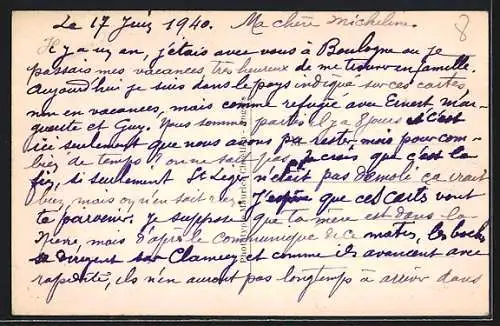 Le 17 Juin 1940. Ma chère Micheline. 8
Il y a un an, j'étais avec vous à Boulogne ou je
passais mes vacances, très heureux de me trouver en famille.
Aujourd'hui je suis dans le pays indiqué sur ces cartes,
non en vacances, mais comme refugié avec Ernest Mar-
guerite et Guy. Nous sommes partis il y a 8 jours et c'est
ici seulement que nous avons pu rester, mais pour com-
bien de temps? on ne sait pas, je crois que c'est la
fin, si seulement St Leger n'était pas démoli ça irait
bien, mais on n'en sait rien. J'espère que ces cartes vont
te parvenir. je suppose que ta mère est dans la
Nièvre, mais d'après le communiqué de ce matin, les boches
se dirigent sur Clamecy et comme ils avancent avec
rapidité, ils n'en auront pas longtemps à arriver dans